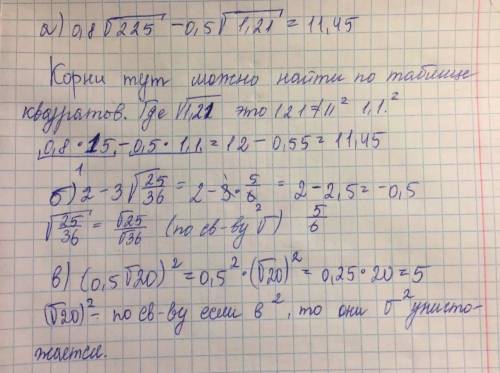 а) 0,8√225 − 0,5√1,21 = 11,45
Корни тут можно найти по таблице
квадратов. Где √1,21 это 121 11² 1,1²
0,8 · 15 − 0,5 · 1,1 = 12 − 0,55 = 11,45
б) 2 − 3√25/36 = 2 − 3 · 5/6 = 2 − 2,5 = −0,5
√25/36 = √25/√36 (по св-ву √) 5/6
в) (0,5√20)² = 0,5² · (√20)² = 0,25 · 20 = 5
(√20)² − по св-ву если в ², то они √ ² уничто-
жается.